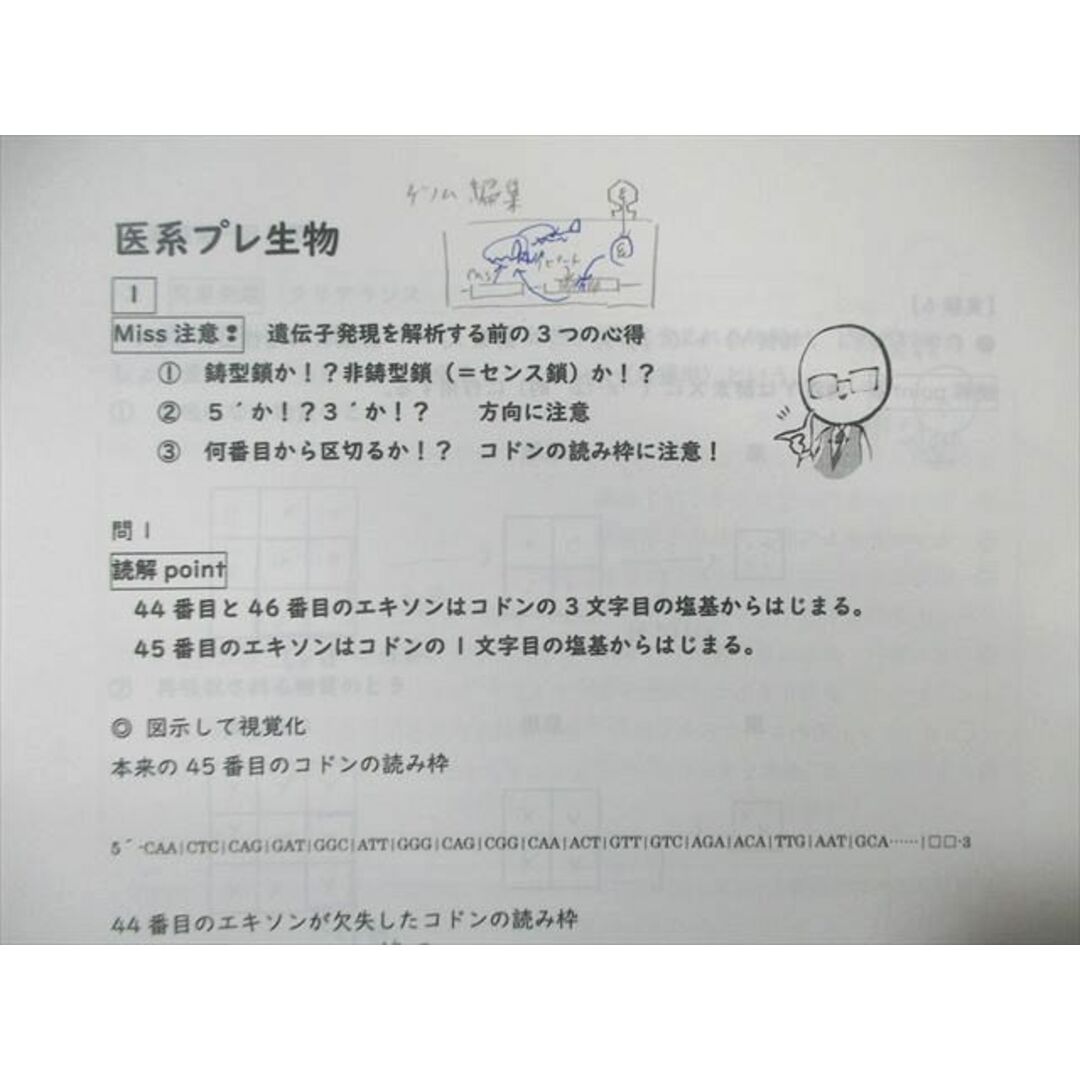 ゲノム編集
医系プレ生物
1
Miss 注意❢ 遺伝子発現を解析する前の3つの心得
① 鋳型鎖か!?非鋳型鎖(=センス鎖)か!?
② 5´か!?3´か!? 方向に注意
③ 何番目から区切るか!? コドンの読み枠に注意!
問1
読解 point
44番目と46番目のエキソンはコドンの3文字目の塩基からはじまる。
45番目のエキソンはコドンの1文字目の塩基からはじまる。
◎ 図示して視覚化
本来の45番目のコドンの読み枠
5´-CAA|CTC|CAG|GAT|GGC|ATT|GGG|CAG|CGG|CAA|ACT|GTT|GTC|AGA|ACA|TTG|AAT|GCA……|□□-3
44番目のエキソンが欠失したコドンの読み枠